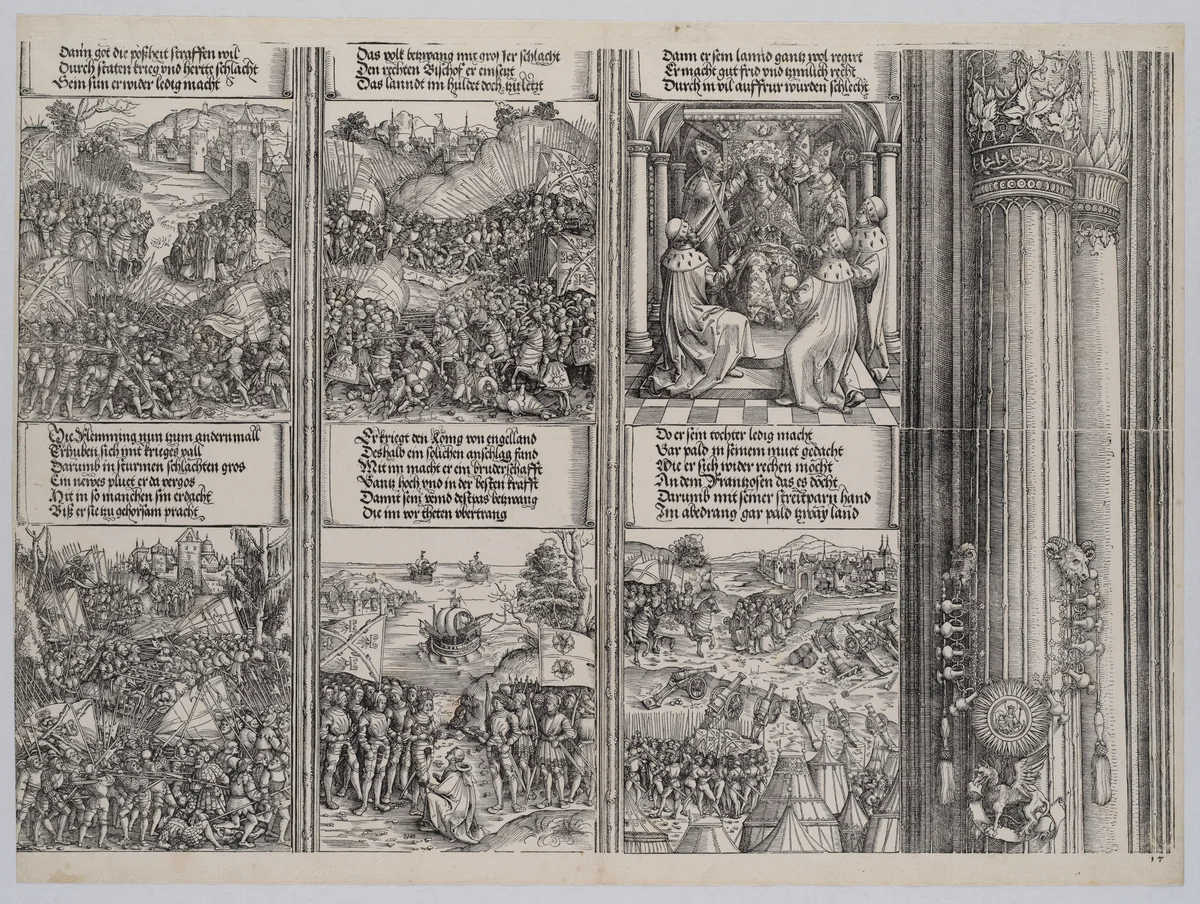 Dann got die poßheit straffen wil
Durch staten krieg vnd hertte schlacht
Sein sun er wider ledig macht
Das volk betzwang mit gros ler schlacht
Den rechten Bischof er einsetzt
Das lanndt im huldet doch tzu letzt
Dann er sein lannd gantz wol regirt
Er macht gut frid vnd tzimlich recht
Durch in vil auffrur wurden schlecht
Die Flemming nun tzum andernmall
Erhuben sich mit krieges vall
Darumb in sturmen schlachten gros
Ein newes pluet er da vergos
Mit in so manchen sin erdacht
Biß er sie tzu gehorsam pracht
Er kriegt den König von engelland
Deshalb ein solichen anschlag fand
Mit im macht er ein bruderschafft
Gantz hoch vnd in der besten krafft
Damit sein veind destbas betzwang
Die im vor theten vbertrang
Do er sein tochter ledig macht
War pald in seinem muet gedacht
Wie er sich wider rechen möcht
An dem Frantzosen das es döcht
Darumb mit seiner streitparn hand
Im abedrang gar pald tzway land
17